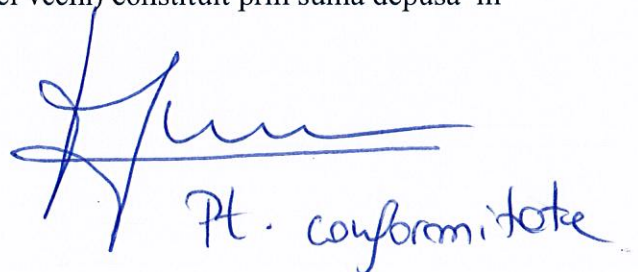 ei vechi) constituit prin suma depusă în
Pt. conformitate